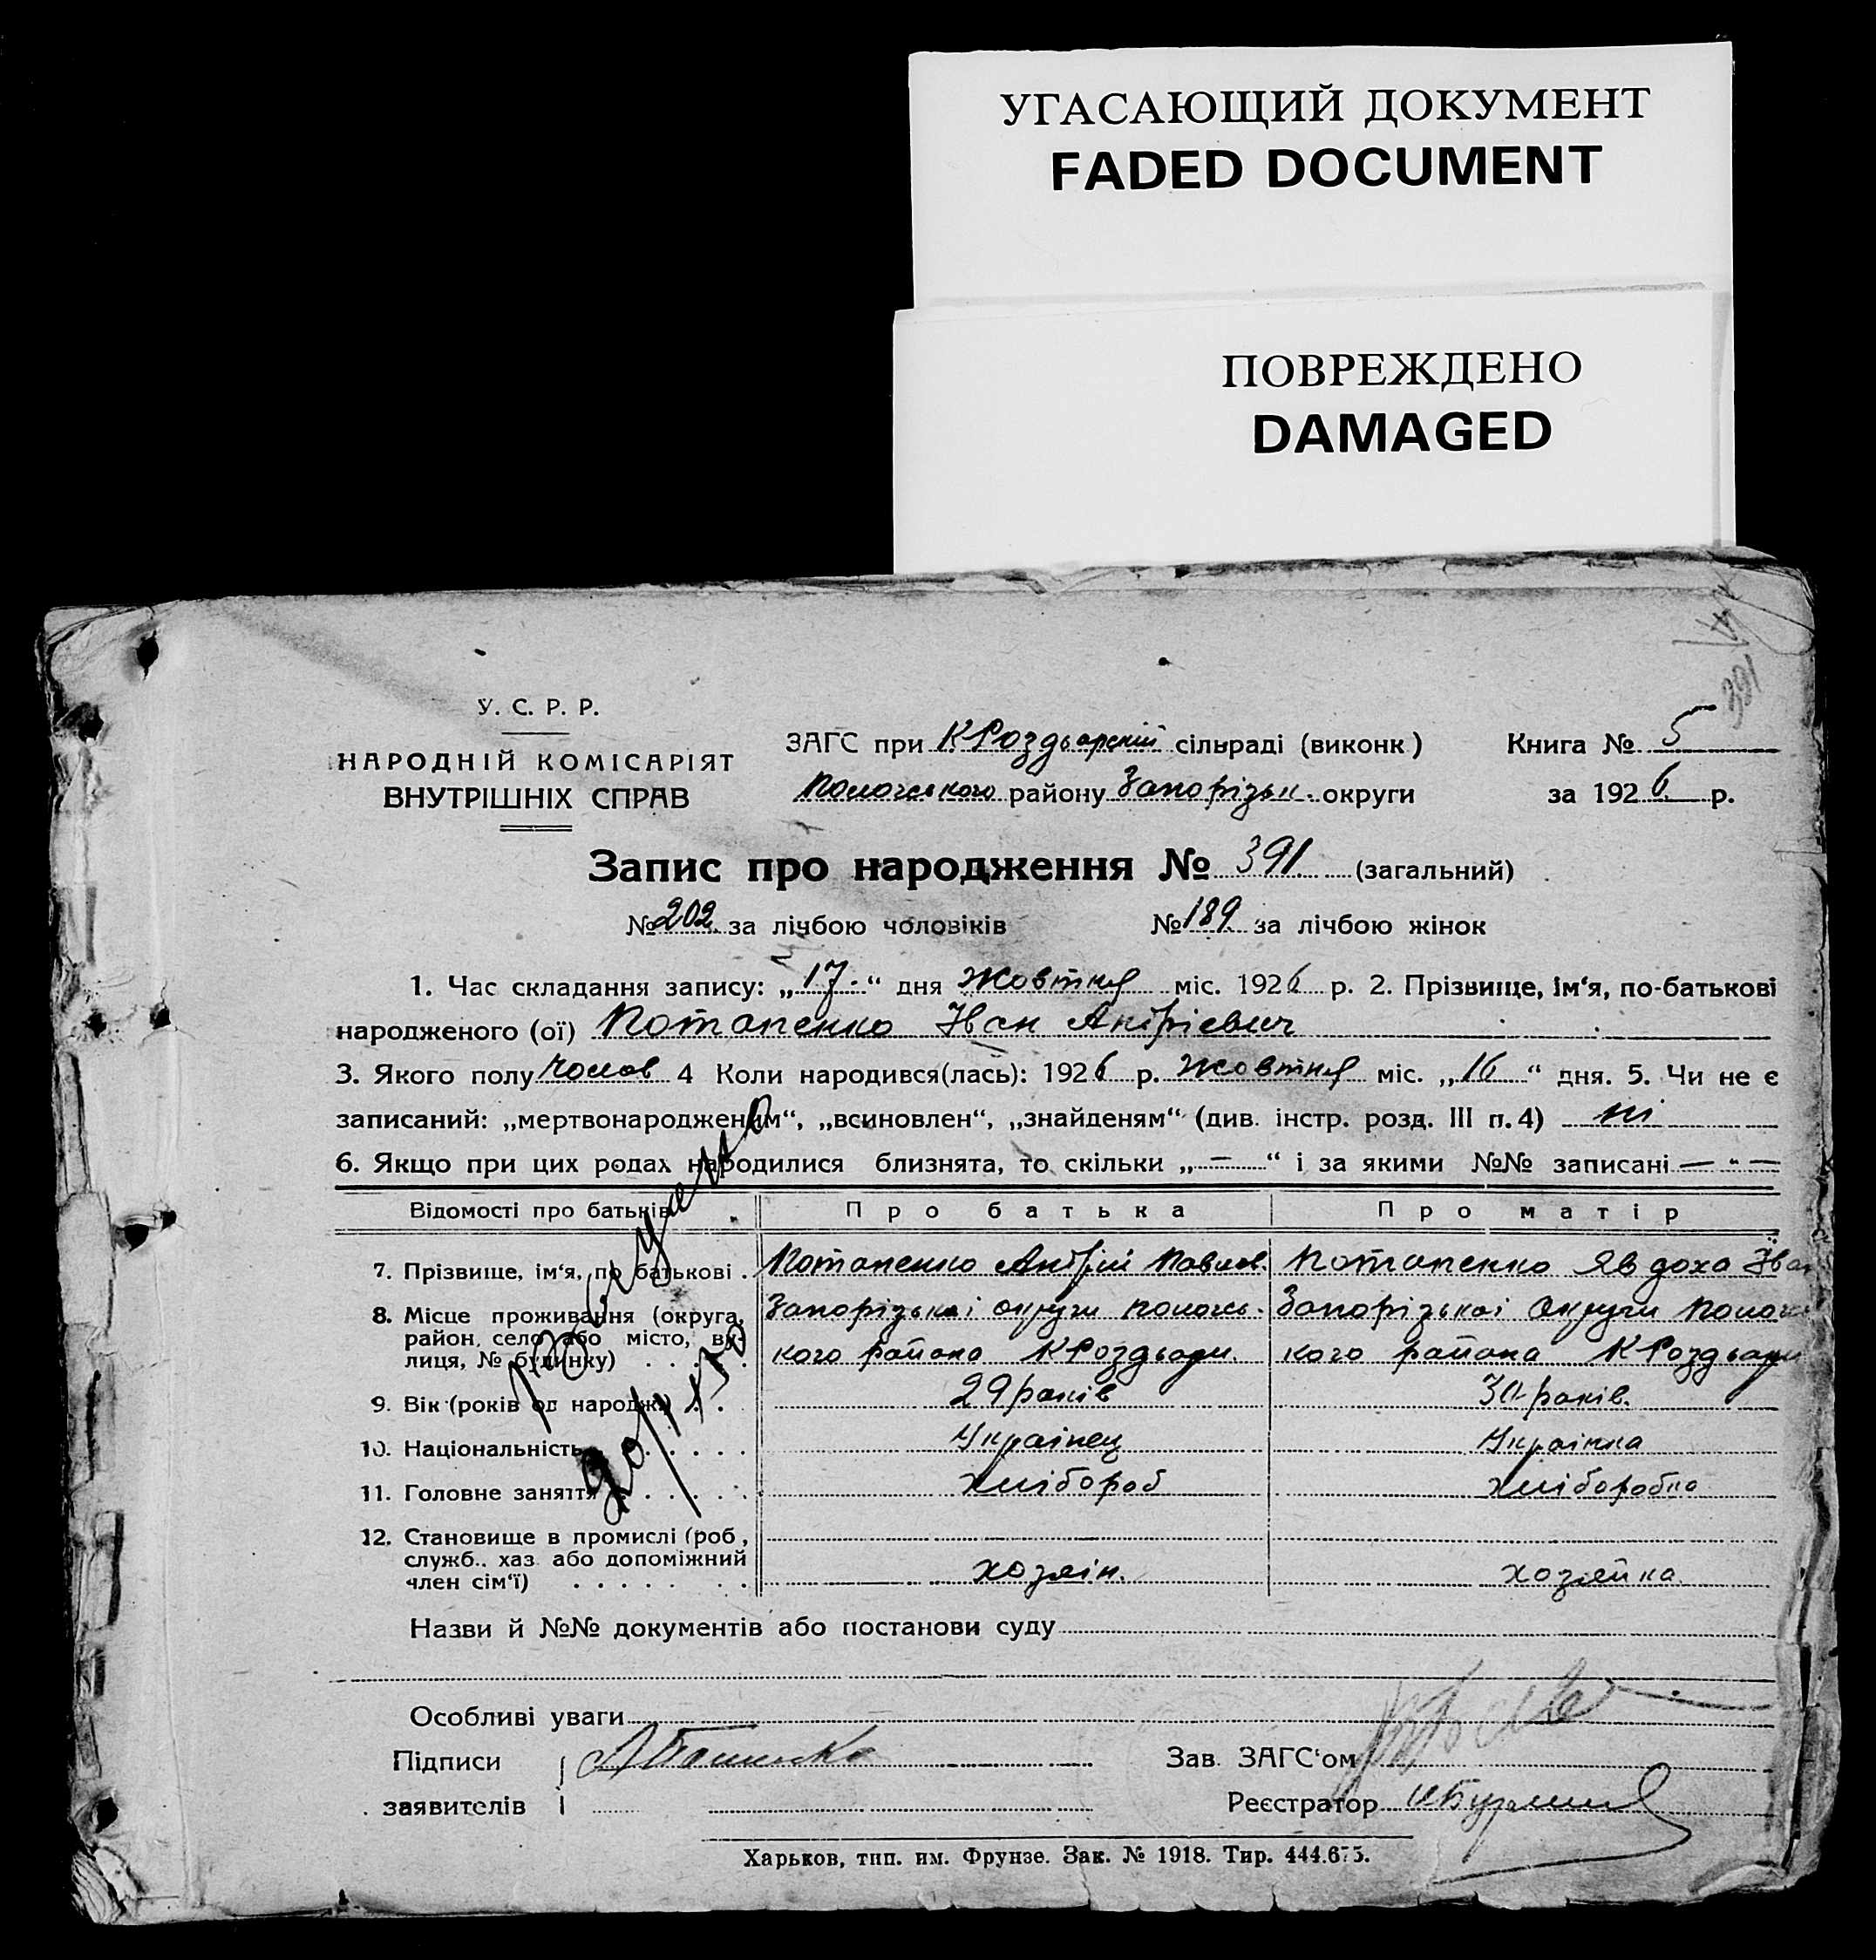 УГАСАЮЩИЙ ДОКУМЕНТ
FADED DOCUMENT
ПОВРЕЖДЕНО
DAMAGED
391
У. С. Р. Р.
НАРОДНІЙ КОМІСАРІЯТ
ВНУТРІШНІХ СПРАВ
ЗАГС при КРоздьорській сільраді (виконк)
Пологського району Запорізьк. округи
Книга № 5
за 1926 р.
Запис про народження № 391 (загальний)
№ 202 за лічбою чоловіків № 189 за лічбою жінок
1. Час складання запису: „17.“ дня Жовтня міс. 1926 р. 2. Прізвище, ім‘я, по-батькові
народженого (ої) Потапенко Іван Андрієвич
3. Якого полу чолов 4 Коли народився(лась): 1926 р. Жовтня міс. „16“ дня. 5. Чи не є
записаний: „мертвонародженим“, „всиновлен“, „знайденям“ (див. інстр. розд. III п. 4) ні
6. Якщо при цих родах народилися близнята, то скільки „—“ і за якими №№ записані — „ —
Відомості про батьків Про батька Про матір
7. Прізвище, ім‘я, по батькові . Потапенко Андрій Павлов. Потапенко Явдоха Іван
8. Місце проживання (округа, Запорізької округи Пологь- Запорізької Округи Пологь
район, село або місто, ву- кого района КРоздьори. кого района КРоздьори
лиця, № будинку) . . . . .
9. Вік (років од народж.) . . 29 років 30 років.
10. Національність . . . . . . Українец Українка
11. Головне заняття . . . . . . хлібороб хліборобка
12. Становище в промислі (роб,
служб., хаз або допоміжний
член сім‘ї) . . . . . . . хозяін. хозяйка
Назви й №№ документів або постанови суду
Особливі уваги
Підписи Зав. ЗАГС‘ом
заявителів Реєстратор
Харьков, тип. им. Фрунзе. Зак. № 1918. Тир. 444.675.